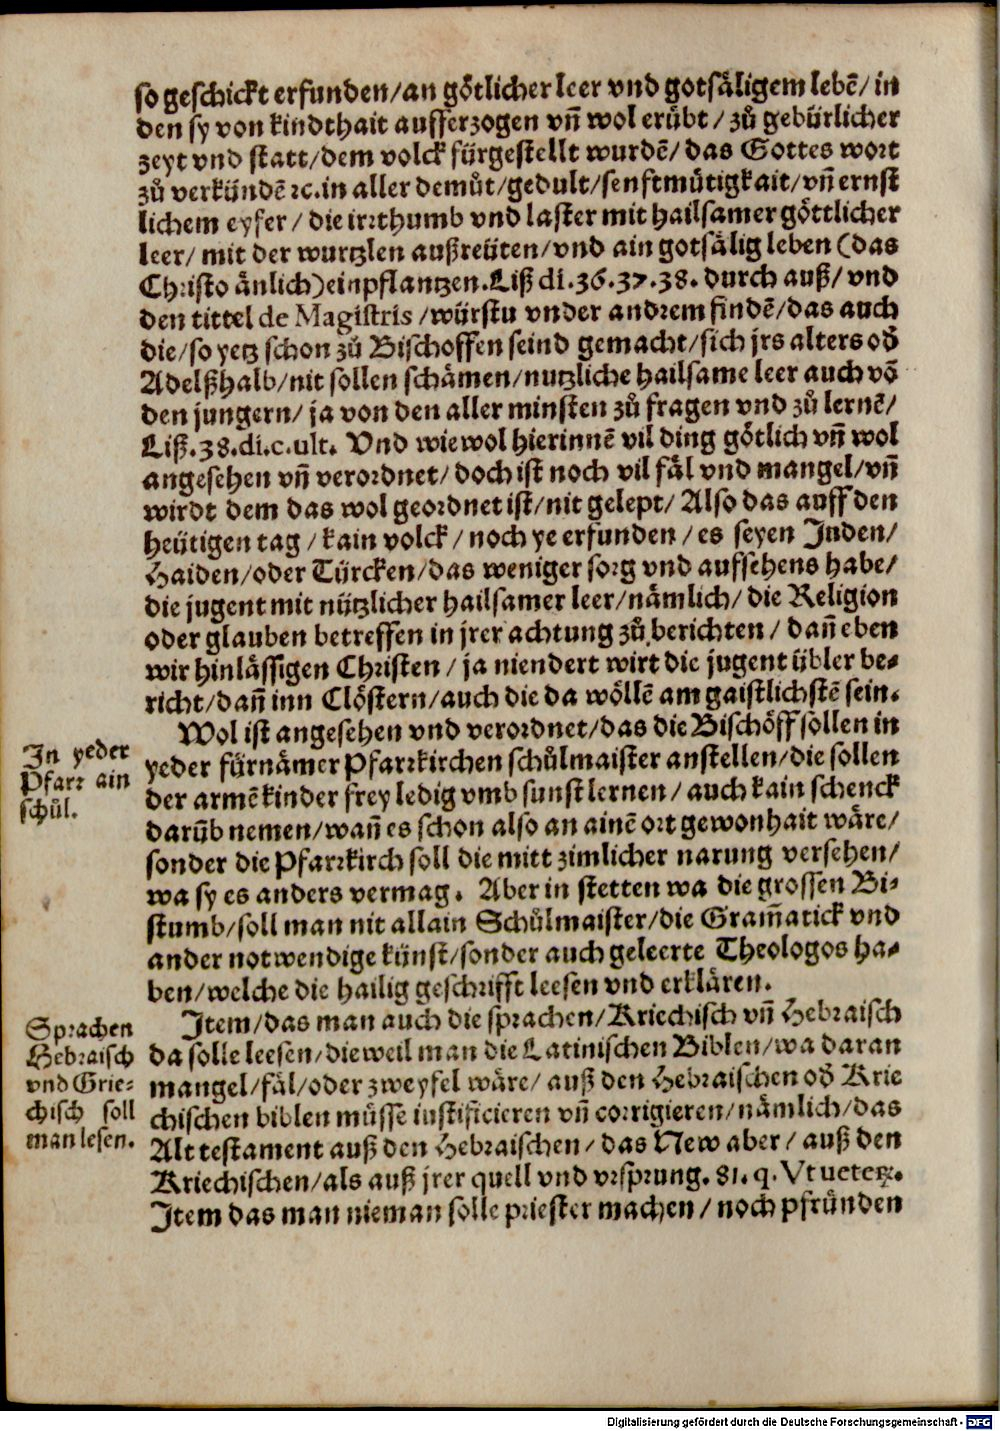 so geschickt erfunden/an götlicher leer vnd gotsäligem lebẽ/in
den sy von kindthait aufferzogen vñ wol erübt/zů gebürlicher
zeyt vnd statt/dem volck fürgestellt wurdẽ/das Gottes wort
zů verkündẽ ꝛc.in aller demůt/gedult/senftmütigkait/vñ ernst
lichem eyfer/die irrthumb vnd laster mit hailsamer göttlicher
leer/mit der wurtzlen außreüten/vnd ain gotsälig leben (das
Christo änlich)einpflantzen.Liß di.36.37.38. durch auß/vnd
den tittel de Magistris/würstu vnder andrem findẽ/das auch
die/so yetz schon zů Bischoffen seind gemacht/sich jrs alters od̃
Adelßhalb/nit sollen schämen/nutzliche hailsame leer auch võ
den jungern/ja von den aller minsten zů fragen vnd zů lernẽ/
Liß.38.di.c.ult. Vnd wiewol hierinnẽ vil ding götlich vñ wol
angesehen vñ verordnet/doch ist noch vil fäl vnd mangel/vñ
wirdt dem das wol geordnet ist/nit gelept/Also das auff den
heütigen tag/kain volck/noch ye erfunden/es seyen Juden/
Haiden/oder Türcken/das weniger sorg vnd aufsehens habe/
die jugent mit nützlicher hailsamer leer/nämlich/die Religion
oder glauben betreffen in jrer achtung zů berichten/dañ eben
wir hinlässigen Christen/ja niendert wirt die jugent übler be-
richt/dañ inn Clöstern/auch die da wöllẽ am gaistlichstẽ sein.
Wol ist angesehen vnd verordnet/das die Bischöff sollen in
yeder fürnämer Pfarrkirchen schůlmaister anstellen/die sollen
der armẽ kinder frey ledig vmb sunst lernen/auch kain schenck
darũb nemen/wañ es schon also an ainẽ ort gewonhait wäre/
sonder die Pfarrkirch soll die mitt zimlicher narung versehen/
wa sy es anders vermag. Aber in stetten wa die grossen Bi-
stumb/soll man nit allain Schůlmaister/die Gram̃atick vnd
ander notwendige künst/sonder auch geleerte Theologos ha-
ben/welche die hailig geschrifft leesen vnd erklären.
Item/das man auch die sprachen/Kriechisch vñ Hebraisch
da solle leesen/dieweil man die Latinischen Biblen/wa daran
mangel/fäl/oder zweyfel wäre/auß den Hebraischen od̃ Krie
chischen biblen müsse iustificieren vñ corrigieren/nämlich/das
Alt testament auß den Hebraischen/das New aber/auß den
Kriechischen/als auß jrer quell vnd vrsprung. 81. q. Vt ueteꝝ.
Item das man nieman solle priester machen/noch pfründen
In yeder
Pfarr ain
schůl.
Sprachen
Hebraisch
vnd Grie-
chisch soll
man lesen.
Digitalisierung gefördert durch die Deutsche Forschungsgemeinschaft - DFG